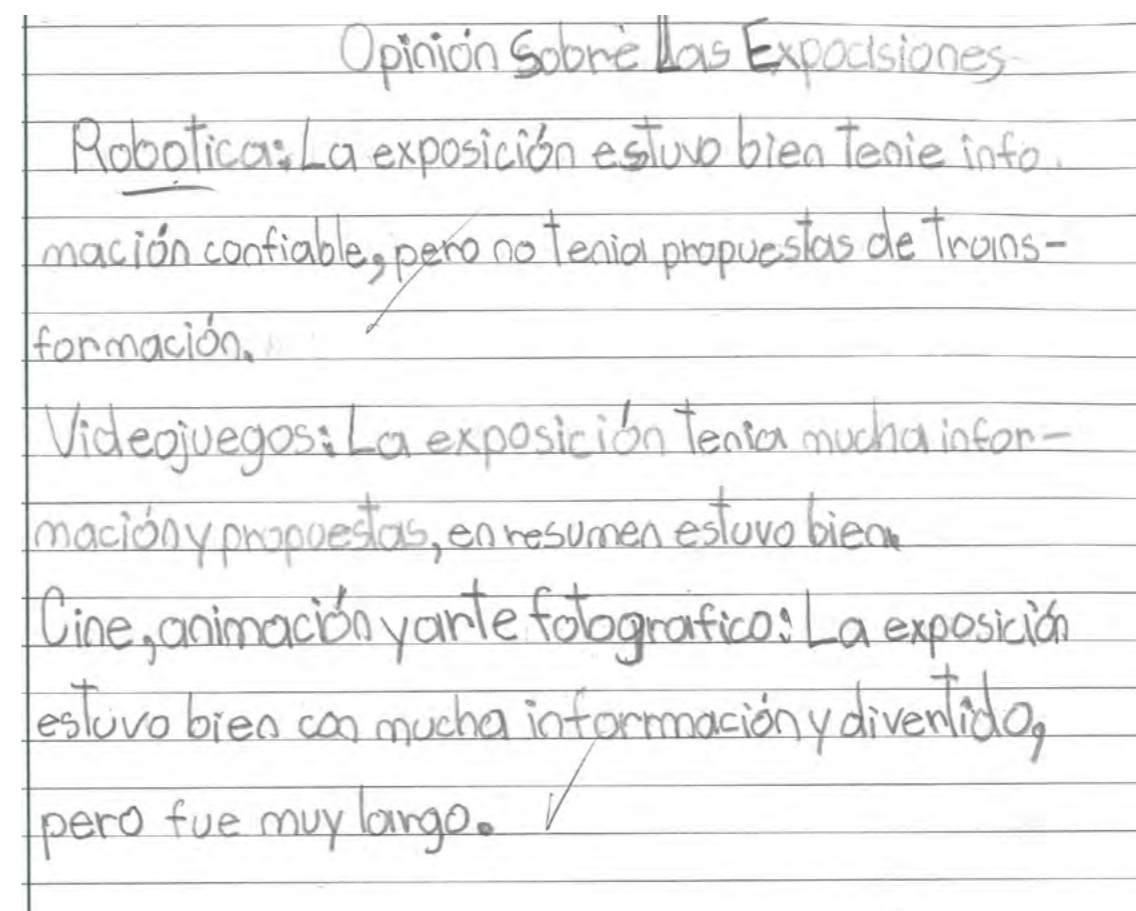 Opinión Sobre Las Expocisiones
Robotica: La exposición estuvo bien tenie info.
mación confiable, pero no tenia propuestas de trans-
formación.
Videojuegos: La exposición tenia mucha infor-
mación y propuestas, en resumen estuvo bien.
Cine, animación y arte fotografico: La exposición
estuvo bien con mucha información y divertido,
pero fue muy largo.